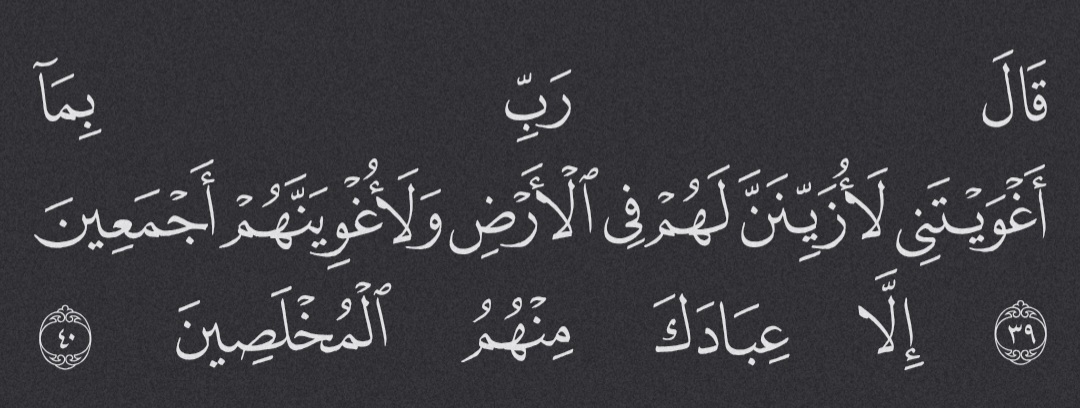 قَالَ رَبِّ بِمَآ
أَغْوَيْتَنِى لَأُزَيِّنَنَّ لَهُمْ فِى ٱلْأَرْضِ وَلَأُغْوِيَنَّهُمْ أَجْمَعِينَ
٣٩ إِلَّا عِبَادَكَ مِنْهُمُ ٱلْمُخْلَصِينَ ٤٠